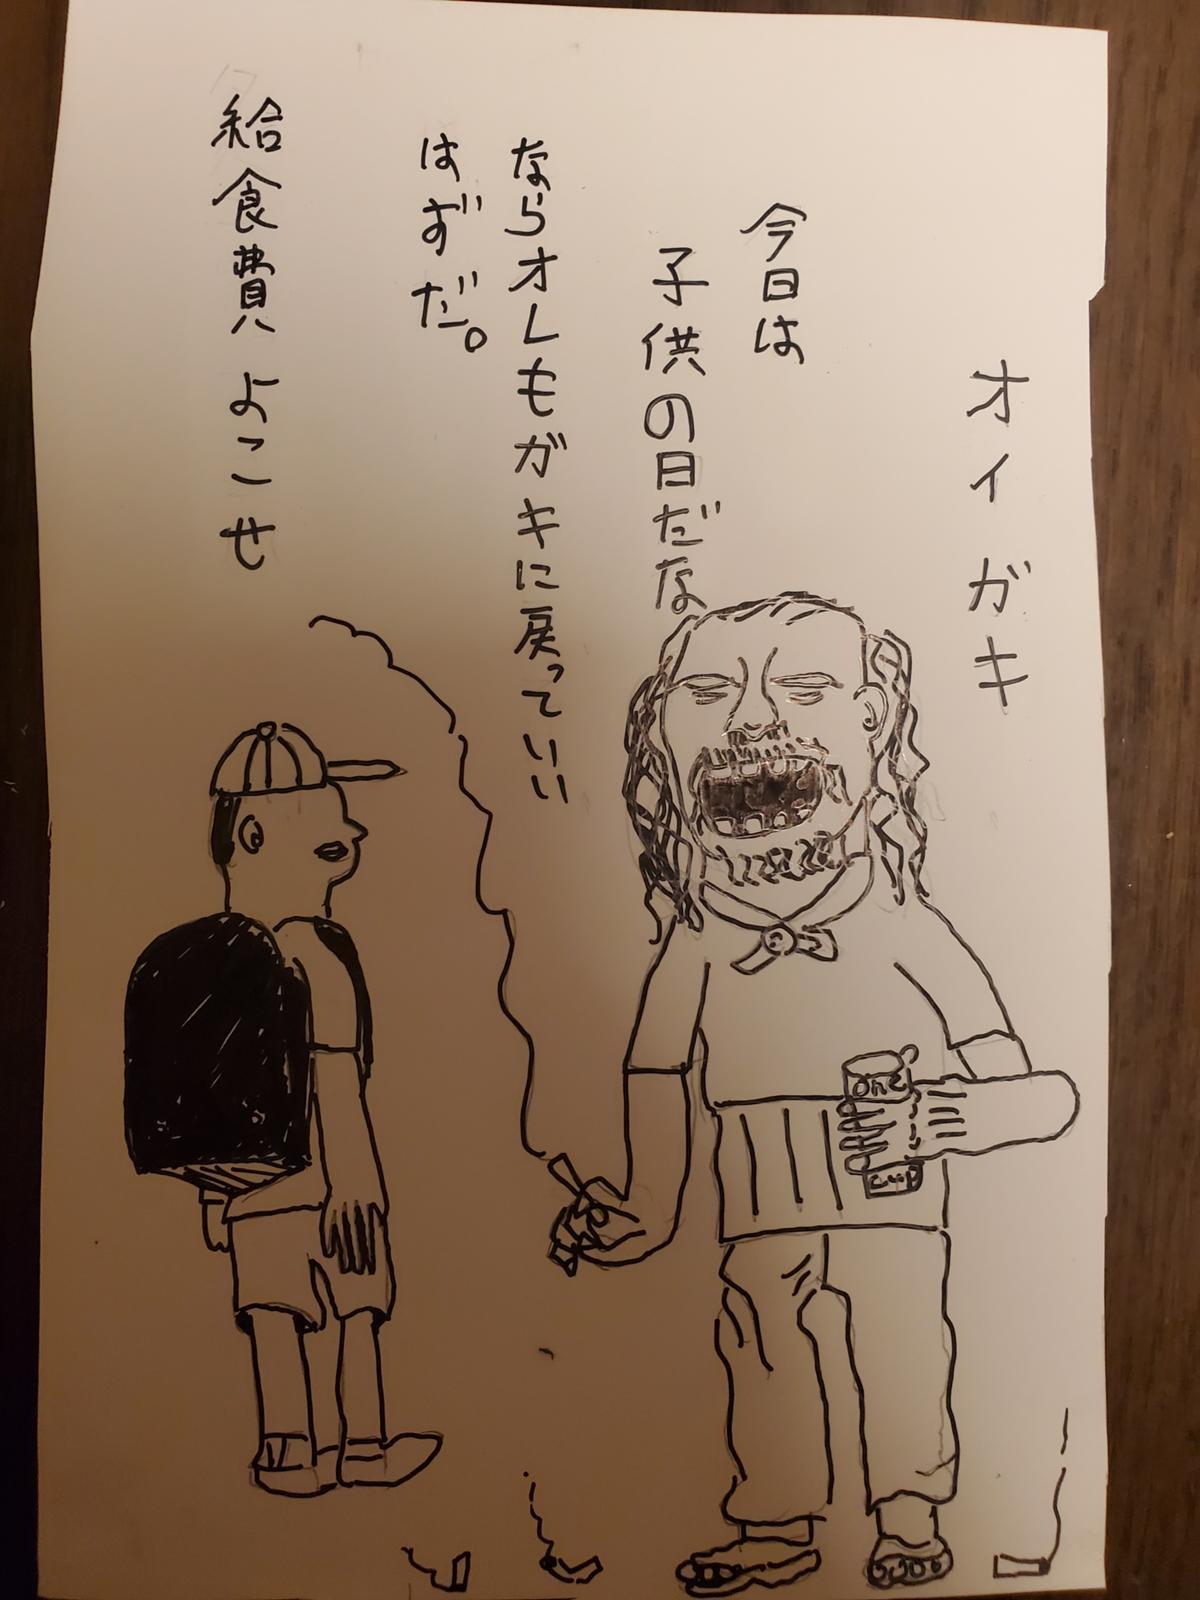 オイガキ
今日は
子供の日だな
ならオレもガキに戻っていい
はずだ。
給食費よこせ
One
CUP